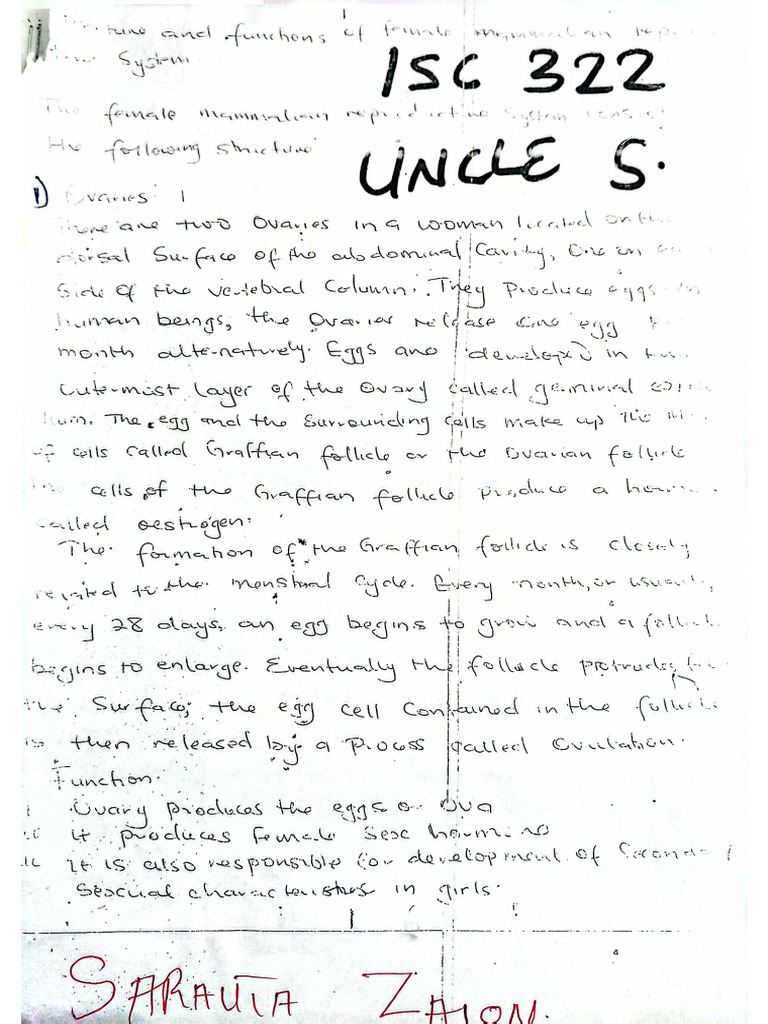 and functions of female mammalian
System
ISC 322
The female mammalian reproductive System consist
the following structure:
UNCLE S.
1) Ovaries:
There are two Ovaries in a woman located on the
dorsal Surface of the abdominal Cavity, One on
Side of the vertebral Column. They Produce eggs. In
human beings, the Ovaries release one egg
month alternatively. Eggs are developed in the
Outermost layer of the Ovary called germinal
lium. The egg and the Surrounding cells make up the
of cells called Graffian follicle or the Ovarian follicle
cells of the Graffian follicle produce a
called oestrogen.
The formation of the Graffian follicle is closely
related to the menstrual Cycle. Every month, or usually,
every 28 days, an egg begins to grow and a
begins to enlarge. Eventually the follicle protrudes
the Surface, the egg cell Contained in the follicle
is then released by a Process called Ovulation.
Function.
i Ovary produces the eggs or Ova
it produces female Sex
it is also responsible for development of
Sexual characteristics in girls.
SARAUTA ZAION.